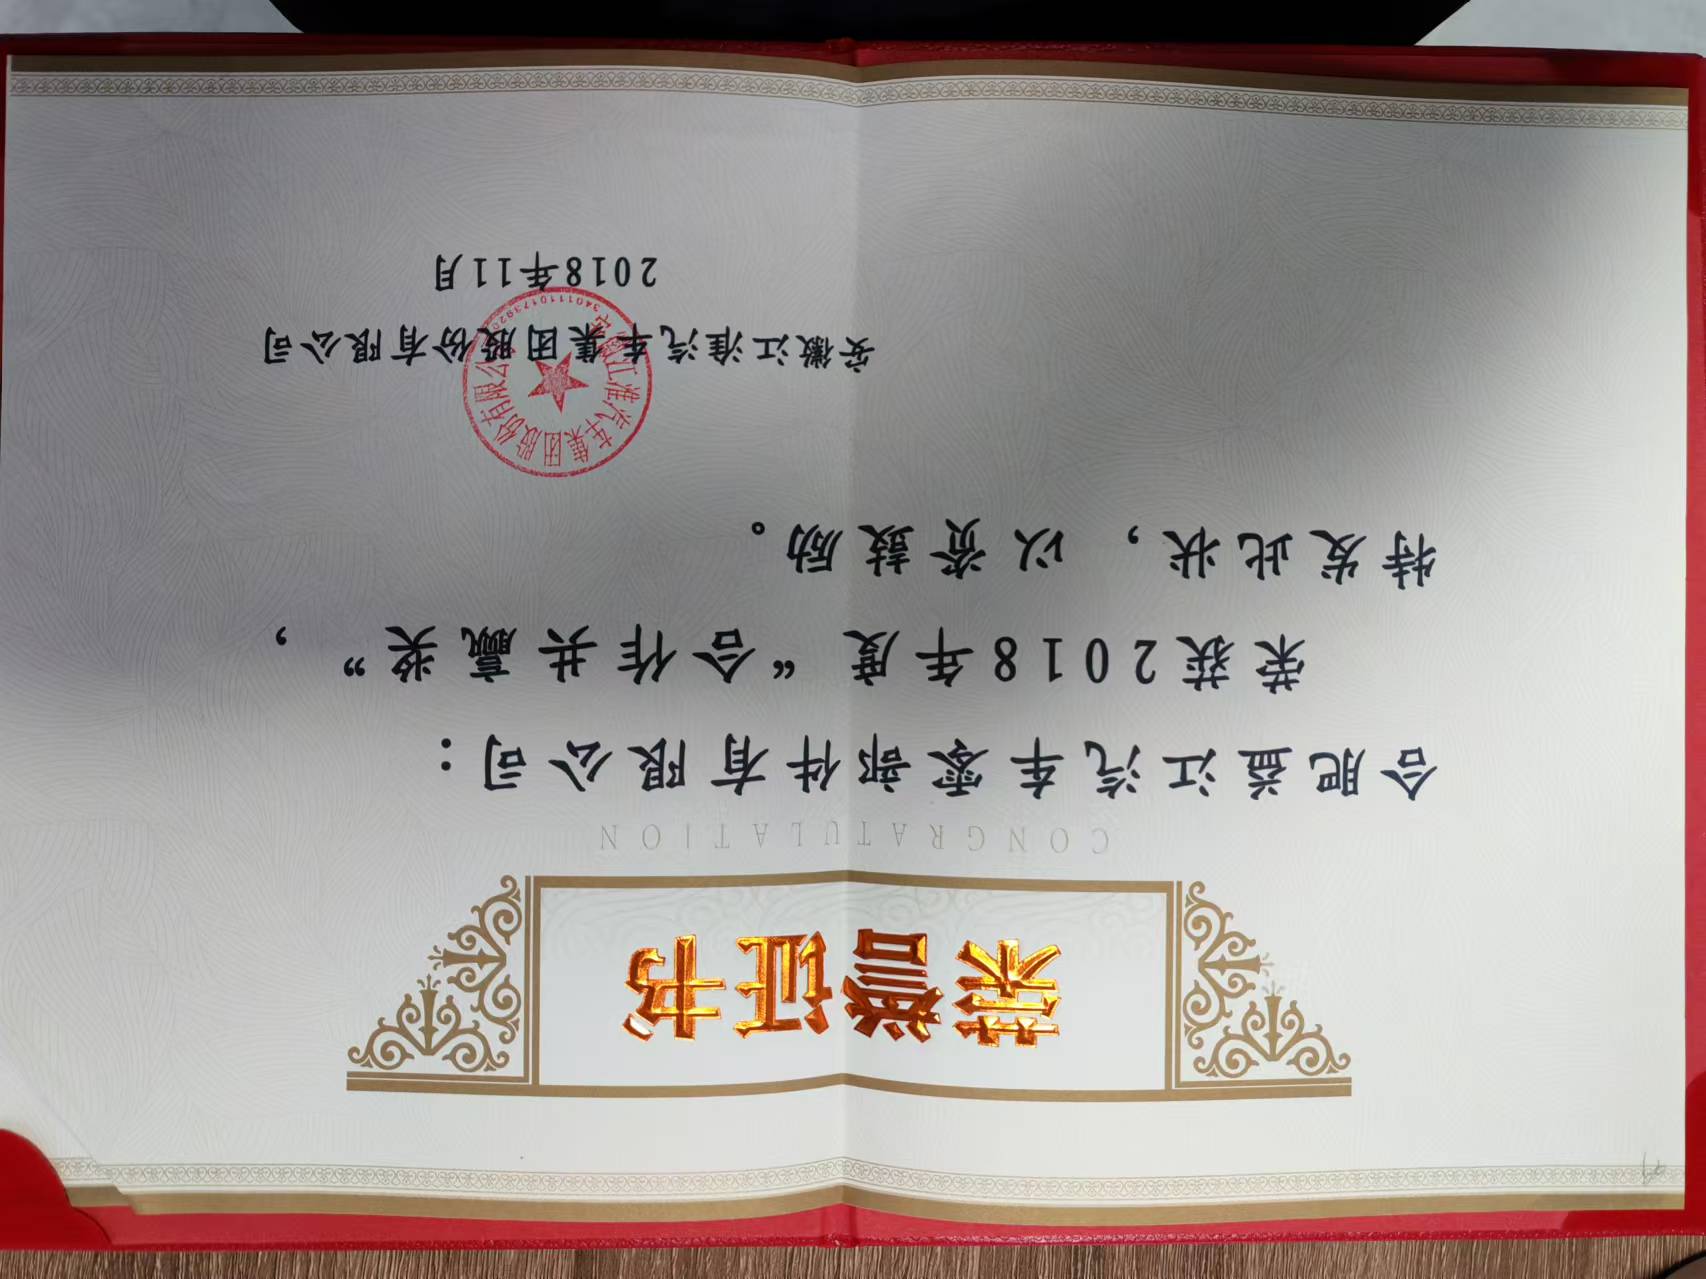 荣誉证书
CONGRATULATION
合肥益江汽车零部件有限公司：
荣获2018年度“合作共赢奖”，
特发此状，以资鼓励。
安徽江淮汽车集团股份有限公司
2018年11月
安徽江淮汽车集团股份有限公司